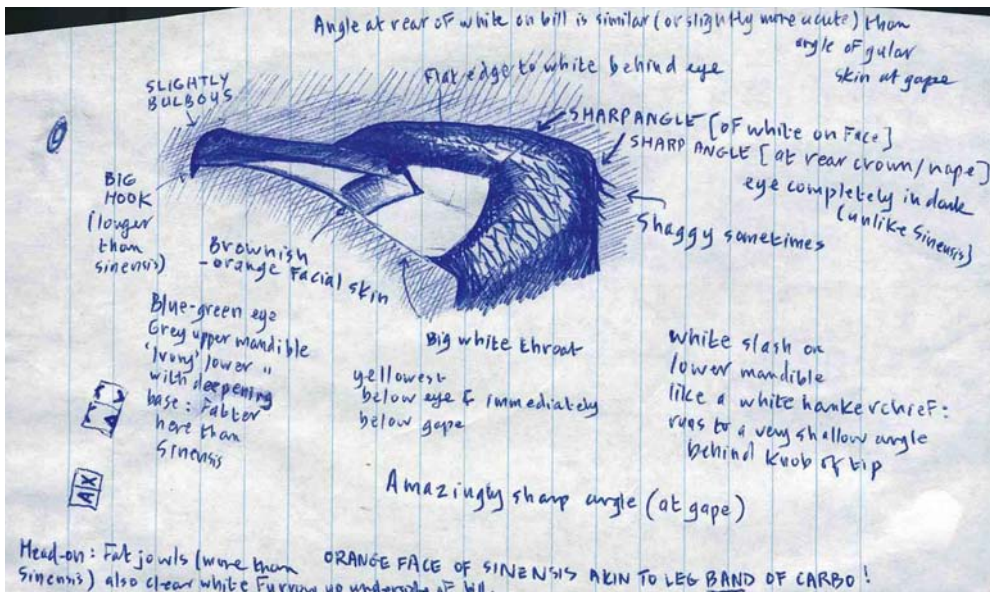 Angle at rear of white on bill is similar (or slightly more acute) than
angle of gular
skin at gape
SLIGHTLY
BULBOUS
Flat edge to white behind eye
SHARP ANGLE [of white on face]
SHARP ANGLE [at rear crown/nape]
eye completely in dark
(unlike Sinensis)
Shaggy sometimes
BIG
HOOK
(longer
than
sinensis)
Brownish
-orange facial skin
Blue-green eye
Grey upper mandible
'Ivory' lower "
with deepening
base: Fatter
here than
Sinensis
Big white throat
yellowest
below eye & immediately
below gape
white slash on
lower mandible
like a white hankerchief:
runs to a very shallow angle
behind knob of tip
Amazingly sharp angle (at gape)
A
A X
Head-on: Fat jowls (more than
Sinensis) also clear white Furrow up underside of bill.
ORANGE FACE OF SINENSIS AKIN TO LEG BAND OF CARBO!